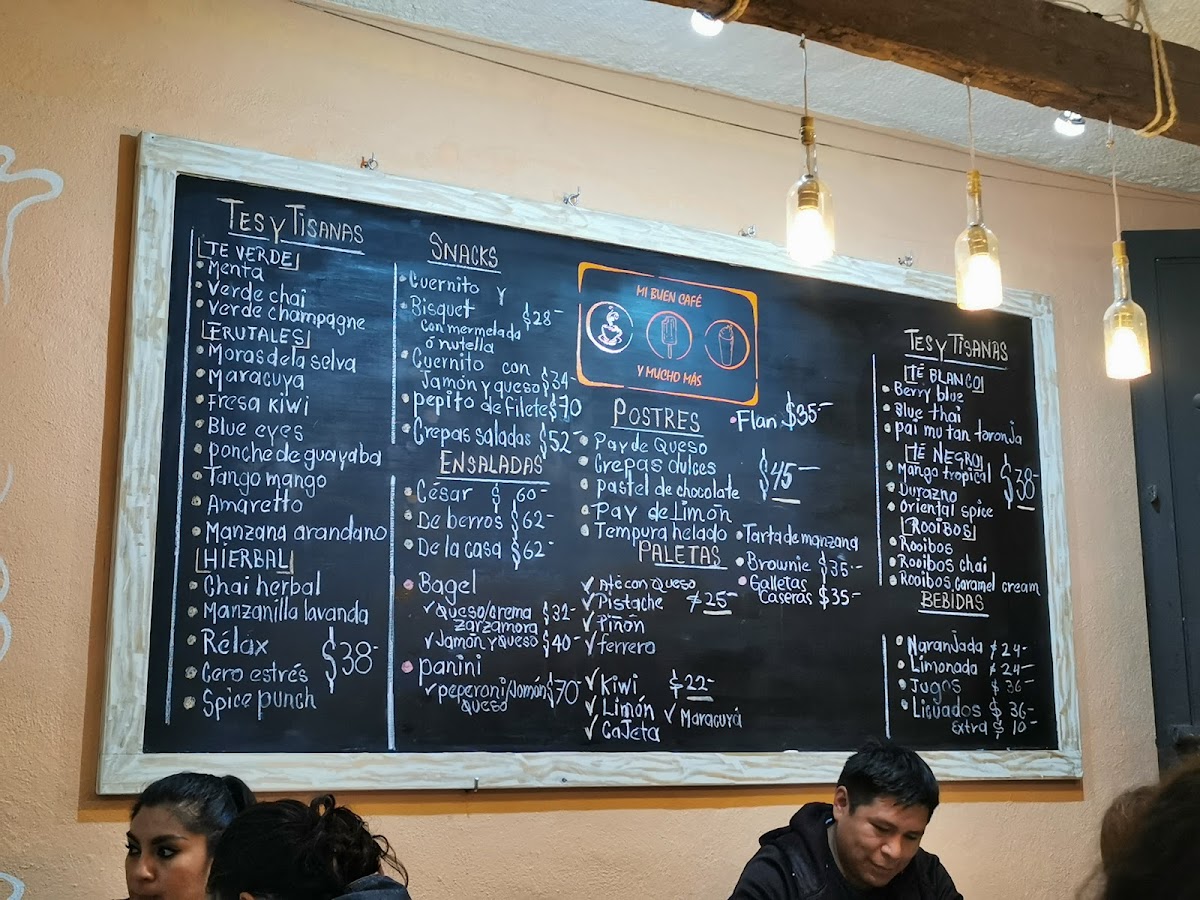 TES Y TISANAS
TE VERDE
Menta
Verde chai
Verde champagne
FRUTALES
Moras de la selva
Maracuya
Fresa kiwi
Blue eyes
ponche de guayaba
Tango mango
Amaretto
Manzana arandano
HIERBAL
Chai herbal
Manzanilla lavanda
Rélax
$38-
Cero estrés
Spice punch
SNACKS
Cuernito y
Bisquet $28-
con mermelada
ó nutella
Cuernito con
Jamón y queso $34-
pepito de Filete $70
Crepas saladas $52-
ENSALADAS
César $ 60-
De berros $62-
De la casa $62-
Bagel
✓ Queso/crema $32-
zarzamora
✓ Jamón y Queso $40-
panini
✓ peperoni/Jamón $70-
Queso
MI BUEN CAFÉ
Y MUCHO MÁS
POSTRES
Pay de Queso
Crepas dulces
pastel de chocolate
Pay de Limón
Tempura helado
$45-
Flan $35-
Tarta de manzana
Brownie $35-
Galletas
Caseras $35-
PALETAS
✓ Até con Queso
✓ Pistache $25-
✓ Piñón
✓ ferrero
✓ Kiwi $22-
✓ Limón ✓ Maracuyá
✓ Cajeta
TES Y TISANAS
TÉ BLANCO
Berry blue
Blue thai
pai mu tan toronja
TÉ NEGRO
Mango tropical
$38-
Durazno
Oriental spice
ROOIBOS
Rooibos
Rooibos chai
Rooibos caramel cream
BEBIDAS
Naranjada $24-
Limonada $24-
Jugos $36-
Licuados $36-
Extra $10-